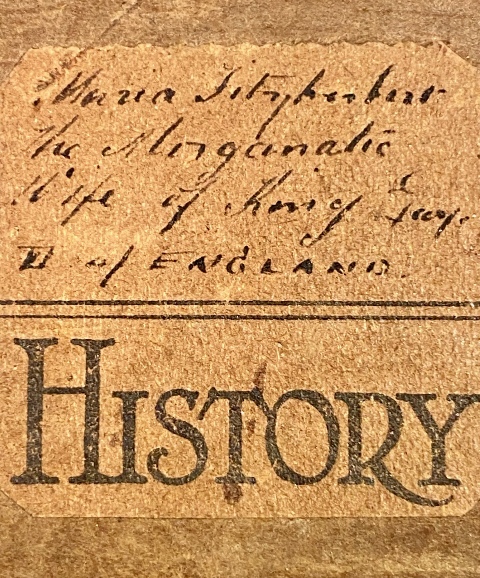 Maria Fitzherbert
The Morganatic
Wife of King
II of ENGLAND.
HISTORY